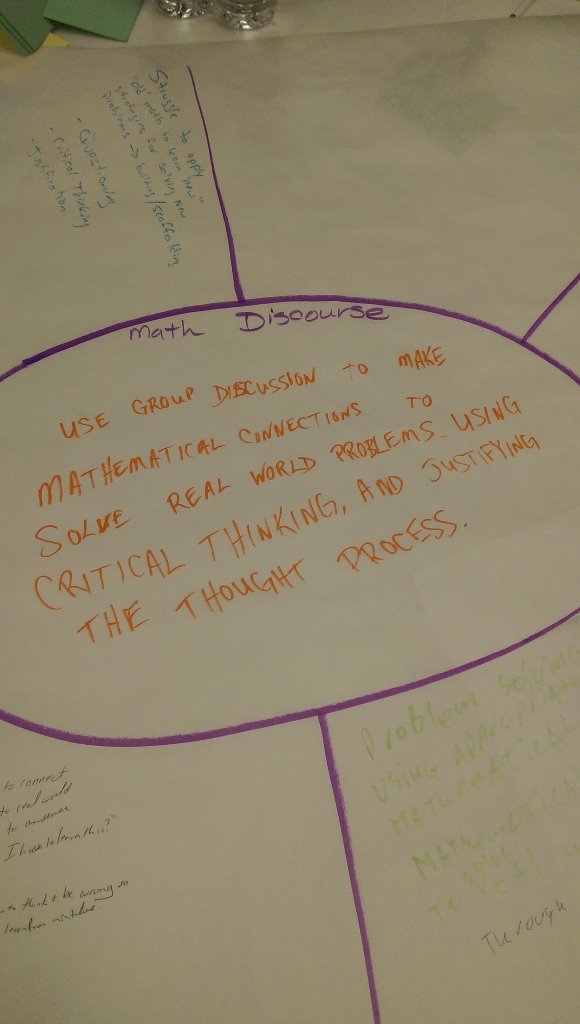 Struggle to apply
"old" math to learn "new"
strategies for solving new
problems → building/scaffolding
- Questioning
- Critical Thinking
- Justification
Math Discourse
USE GROUP DISCUSSION TO MAKE
MATHEMATICAL CONNECTIONS TO
SOLVE REAL WORLD PROBLEMS. USING
CRITICAL THINKING, AND JUSTIFYING
THE THOUGHT PROCESS.
to connect
to real world
to answer
I have to learn this?"
to think & be wrong so
learn from mistakes.
Problem Solving
USING APPROPRIATE
MATHEMATICAL
MATHEMATICAL
SOLVE
Through